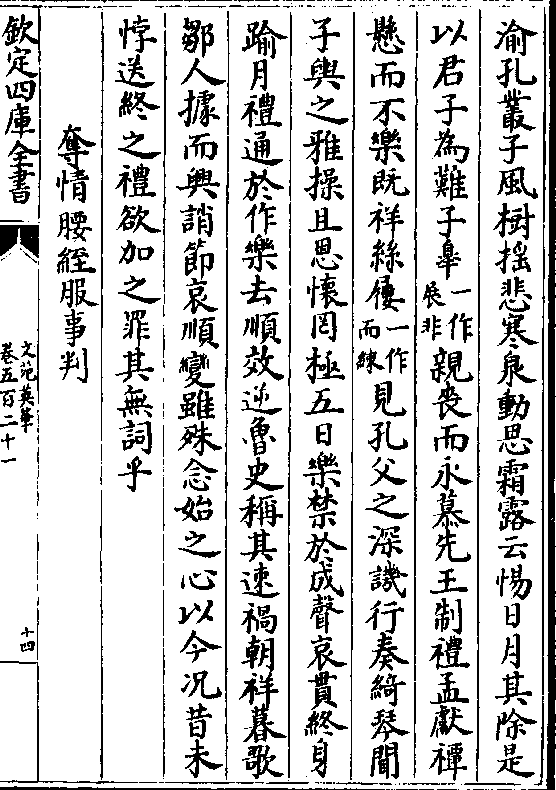 渝孔叢子風樹揺悲寒泉動思霜露云惕日月其除是
以君子為難子臯一作展非親喪而永慕先王制禮孟獻禫
懸而不樂既祥絲屨一作而練見孔父之深譏行奏綺琴聞
子輿之雅操且思懷罔極五日樂禁於成聲哀貫終身
踰月禮通於作樂去順效逆魯史稱其速禍朝祥暮歌
鄒人據而興誚節哀順變雖殊念始之心以今况昔未
悖送終之禮欲加之罪其無詞乎
奪情腰絰服事判
欽定四庫全書
文苑英華
卷五百二十一
十四